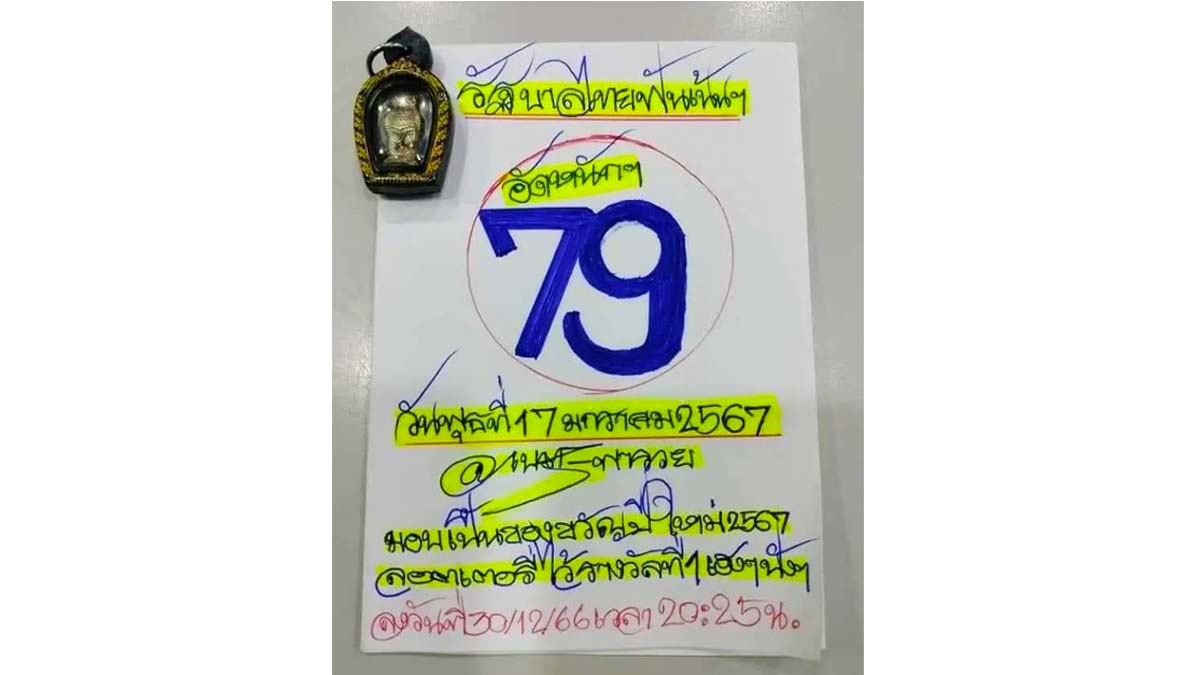 รัฐบาลไทยฟันเน้นๆ
อัดหนักๆ
79
วันพุธที่ 17 มกราคม 2567
พารวย
มอบเป็นของขวัญปีใหม่ 2567
ลอตเตอรี่ ไว้รางวัลที่ 1 เฮงๆปังๆ
ลงวันที่ 30/12/66 เวลา 20:25 น.